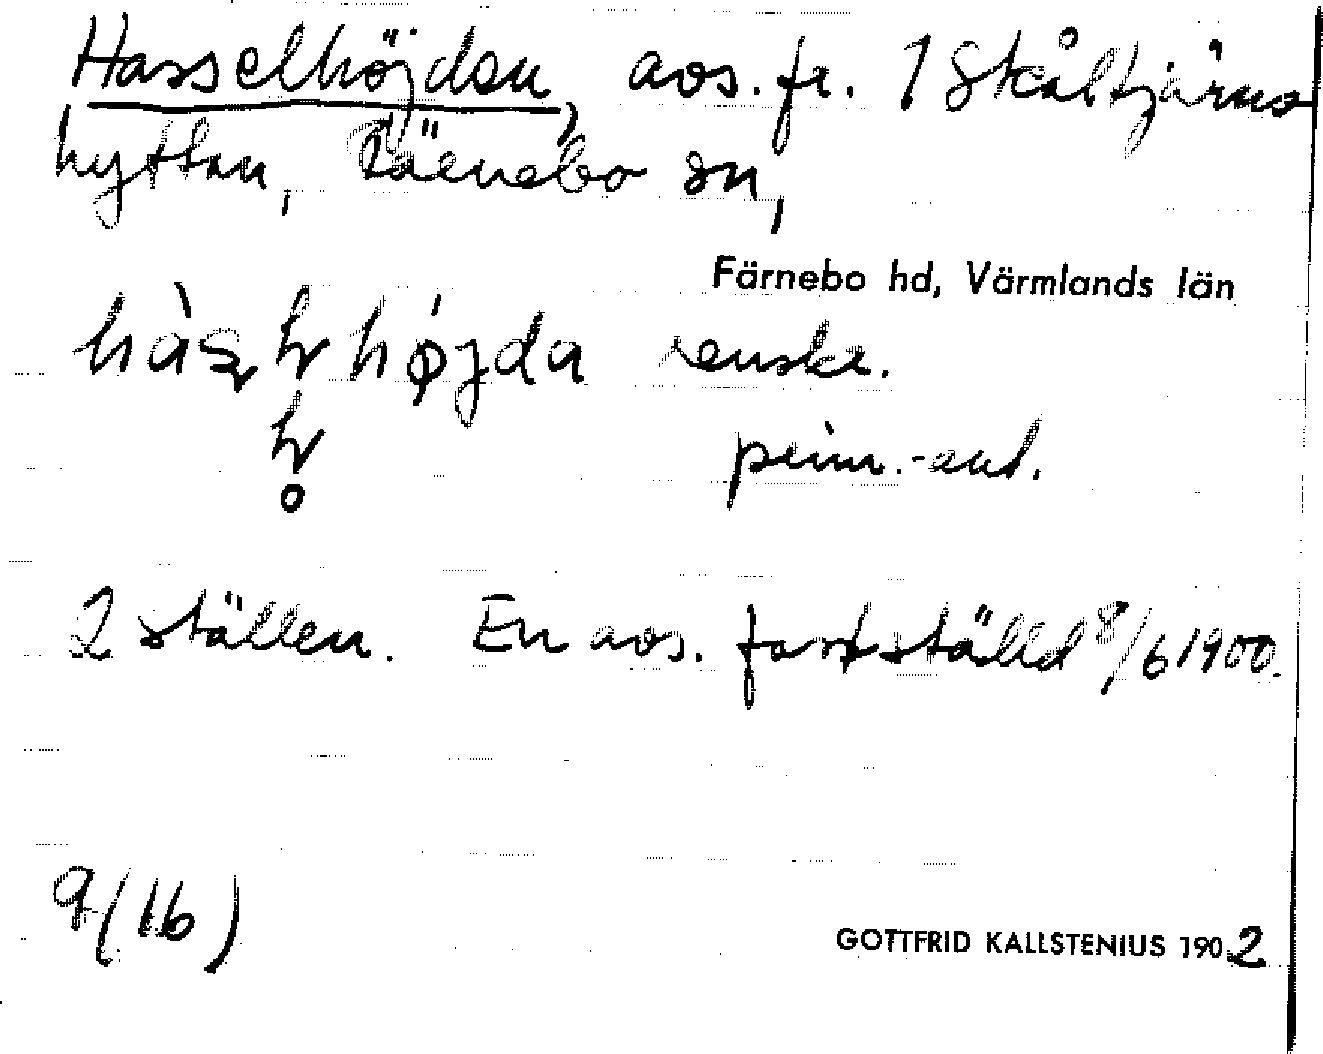 Hasselhöjden, avs. fr. 1 Skåltjärns
hyttan, Rämnebo sn,
Färnebo hd, Värmlands län
höjda
2 ställen. En avs. fastställd 8/6 1900.
9 (16)
GOTTFRID KALLSTENIUS 1902